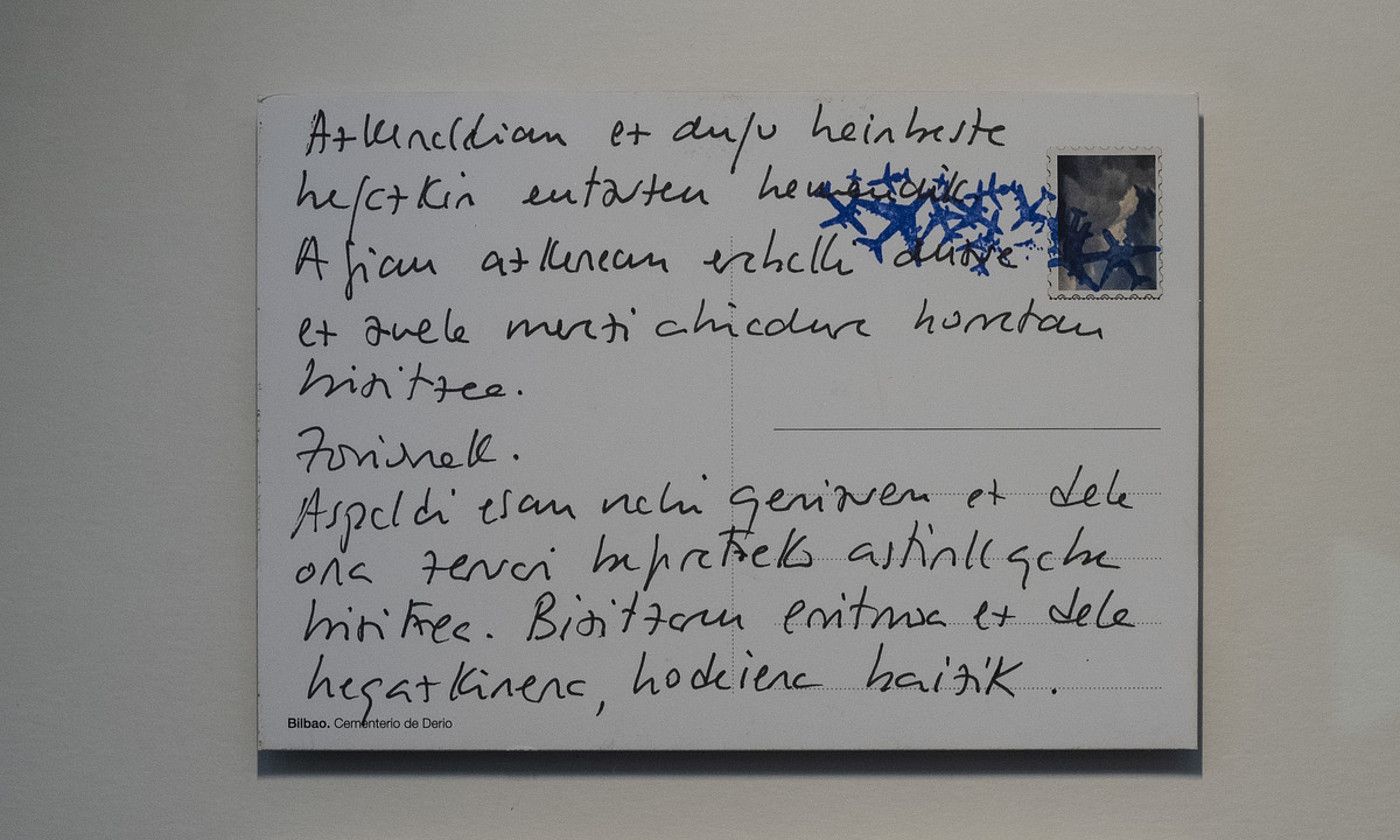 Azkenaldian ez dugu hainbeste
hegazkin entzuten hemendik.
Agian azkenean erabaki duzue
ez zuela merezi abiadura horretan
bizitzea.
Zorionak.
Aspaldi esan nahi genizuen ez dela
ona zeruari begiratzeko astirik gabe
bizitzea. Bizitzaren erritmoa ez dela
hegazkinena, hodeiena baizik.
Bilbao. Cementerio de Derio